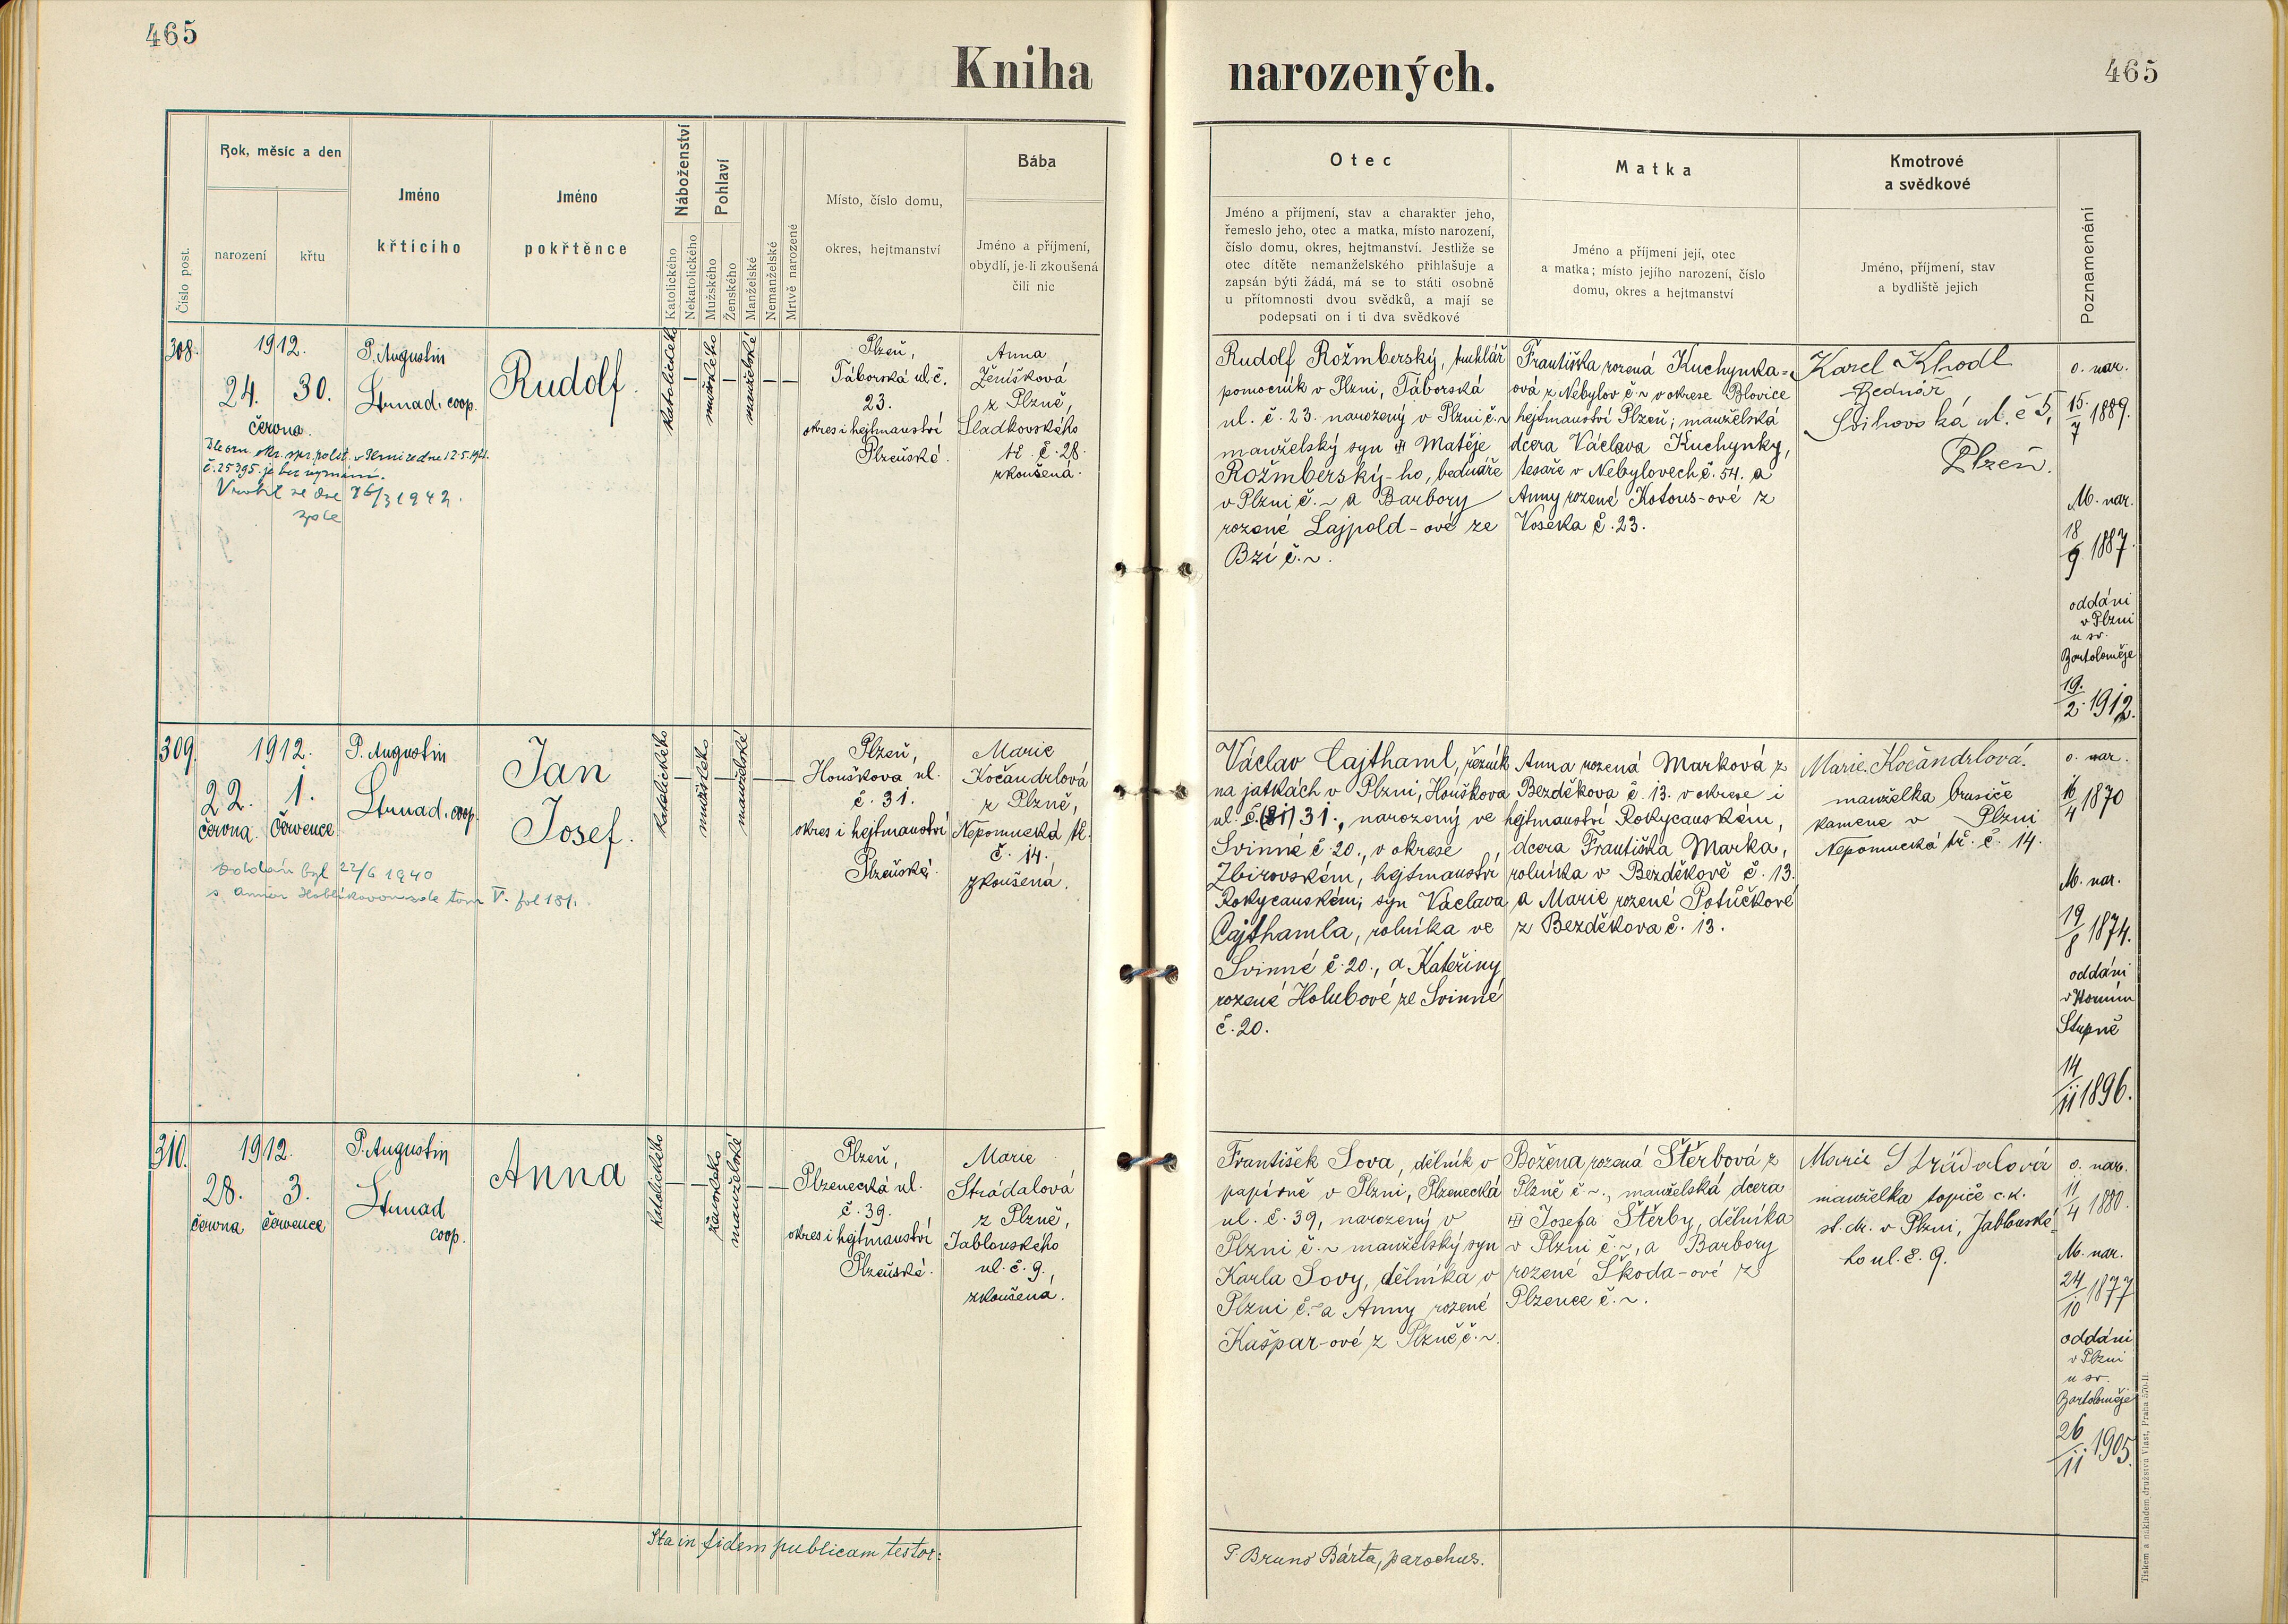 465
Kniha narozených.
465
Číslo post.
Rok, měsíc a den
narození
křtu
Jméno
křticího
Jméno
pokřtěnce
Náboženství
Katolického
Nekatolického
Pohlaví
Mužského
Ženského
Manželské
Nemanželské
Mrtvě narozené
Místo, číslo domu,
okres, hejtmanství
Bába
Jméno a příjmení,
obydlí, je-li zkoušená
čili nic
Otec
Jméno a příjmení, stav a charakter jeho,
řemeslo jeho, otec a matka, místo narození,
číslo domu, okres, hejtmanství. Jestliže se
otec dítěte nemanželského přihlašuje a
zapsán býti žádá, má se to státi osobně
u přítomnosti dvou svědků, a mají se
podepsati on i ti dva svědkové
Matka
Jméno a příjmení její, otec
a matka; místo jejího narození, číslo
domu, okres a hejtmanství
Kmotrové
a svědkové
Jméno, příjmení, stav
a bydliště jejich
Poznamenání
308.
1912.
24. 30.
června.
P. Augustin
Strnad, coop.
Rudolf.
katolického
mužského
manželské
Plzeň,
Táborská ul č.
23.
okres i hejtmanství
Plzeňské.
Anna
Ženíšková
z Plzně,
Sladkovského
tř. č. 28.
zkoušená.
č. 25395. je bez vyznání.
Vrátil se dne 26/3 1942.
zpět
Rudolf Rožmberský, truhlář
pomocník v Plzni, Táborská
ul. č. 23. narozený v Plzni č. ~
manželský syn Matěje
Rožmberský-ho, bednáře
v Plzni č. ~ a Barbory
rozené Lajpold-ové ze
Bzí č. ~.
Františka rozená Kuchynka-
ová z Nebylov č. ~ v okrese Blovice
hejtmanství Plzeň; manželská
dcera Václava Kuchynky,
tesaře v Nebylovech č. 54. a
Anny rozené Kotous-ové z
Voseka č. 23.
Karel Khodl
Bednář
Švihovská ul. č 5,
Plzeň.
o. nar.
15./7 1889.
M. nar.
18/9 1887.
oddáni
v Plzni
u sv.
Bartoloměje
19./2 1912.
309.
1912.
22. 1.
června. července
P. Augustin
Strnad, coop.
Jan
Josef.
katolického
mužského
manželské
Plzeň,
Houškova ul.
č. 31.
okres i hejtmanství
Plzeňské.
Marie
Kočandrlová
z Plzně,
Nepomucká tř.
č. 14.,
zkoušená.
oddán byl 22/6 1940
s Annou Hoblíkovou zde tom V. fol 181.
Václav Cajthaml, řezník
na jatkách v Plzni, Houškova
ul. č. (31) 31., narozený ve
Svinné č. 20., v okrese
Zbirovském, hejtmanství
Rokycanském; syn Václava
Cajthamla, rolníka ve
Svinné č. 20., a Kateřiny
rozené Holubové ze Svinné
č. 20.
Anna rozená Marková z
Bezděkova č. 13. v okrese i
hejtmanství Rokycanském,
dcera Františka Marka,
rolníka v Bezděkově č. 13.
a Marie rozené Potůčkové
z Bezděkova č. 13.
Marie Kočandrlová.
manželka brusiče
kamene v Plzni
Nepomucká tř. č. 14.
o. nar.
16/4 1870
M. nar.
19/8 1874.
oddáni
v Horním
Stupně
14/11 1896.
310.
1912.
28. 3.
června července
P. Augustin
Strnad
coop.
Anna
katolického
ženského
manželské
Plzeň,
Plzenecká ul.
č. 39.
okres i hejtmanství
Plzeňské.
Marie
Strádalová
z Plzně,
Jablonského
ul. č. 9.,
zkoušena.
František Sova, dělník v
papírně v Plzni, Plzenecká
ul. č. 39, narozený v
Plzni č. ~ manželský syn
Karla Sovy, dělníka v
Plzni č. ~ a Anny rozené
Kašpar-ové z Plzně č. ~.
Božena rozená Štěrbová z
Plzně č. ~., manželská dcera
Josefa Štěrby, dělníka
v Plzni č. ~, a Barbory
rozené Škoda-ové z
Plzence č. ~.
Marie Strádalová
manželka topiče c. k.
st. dr. v Plzni, Jablonské-
ho ul. č. 9.
o. nar.
11/4 1880.
M. nar.
24/10 1877
oddáni
v Plzni
u sv.
Bartoloměje
26/11 1905.
Ita in fidem publicam testor:
P. Bruno Bárta, parochus.
Tiskem a nákladem družstva Vlast, Praha 570-II.